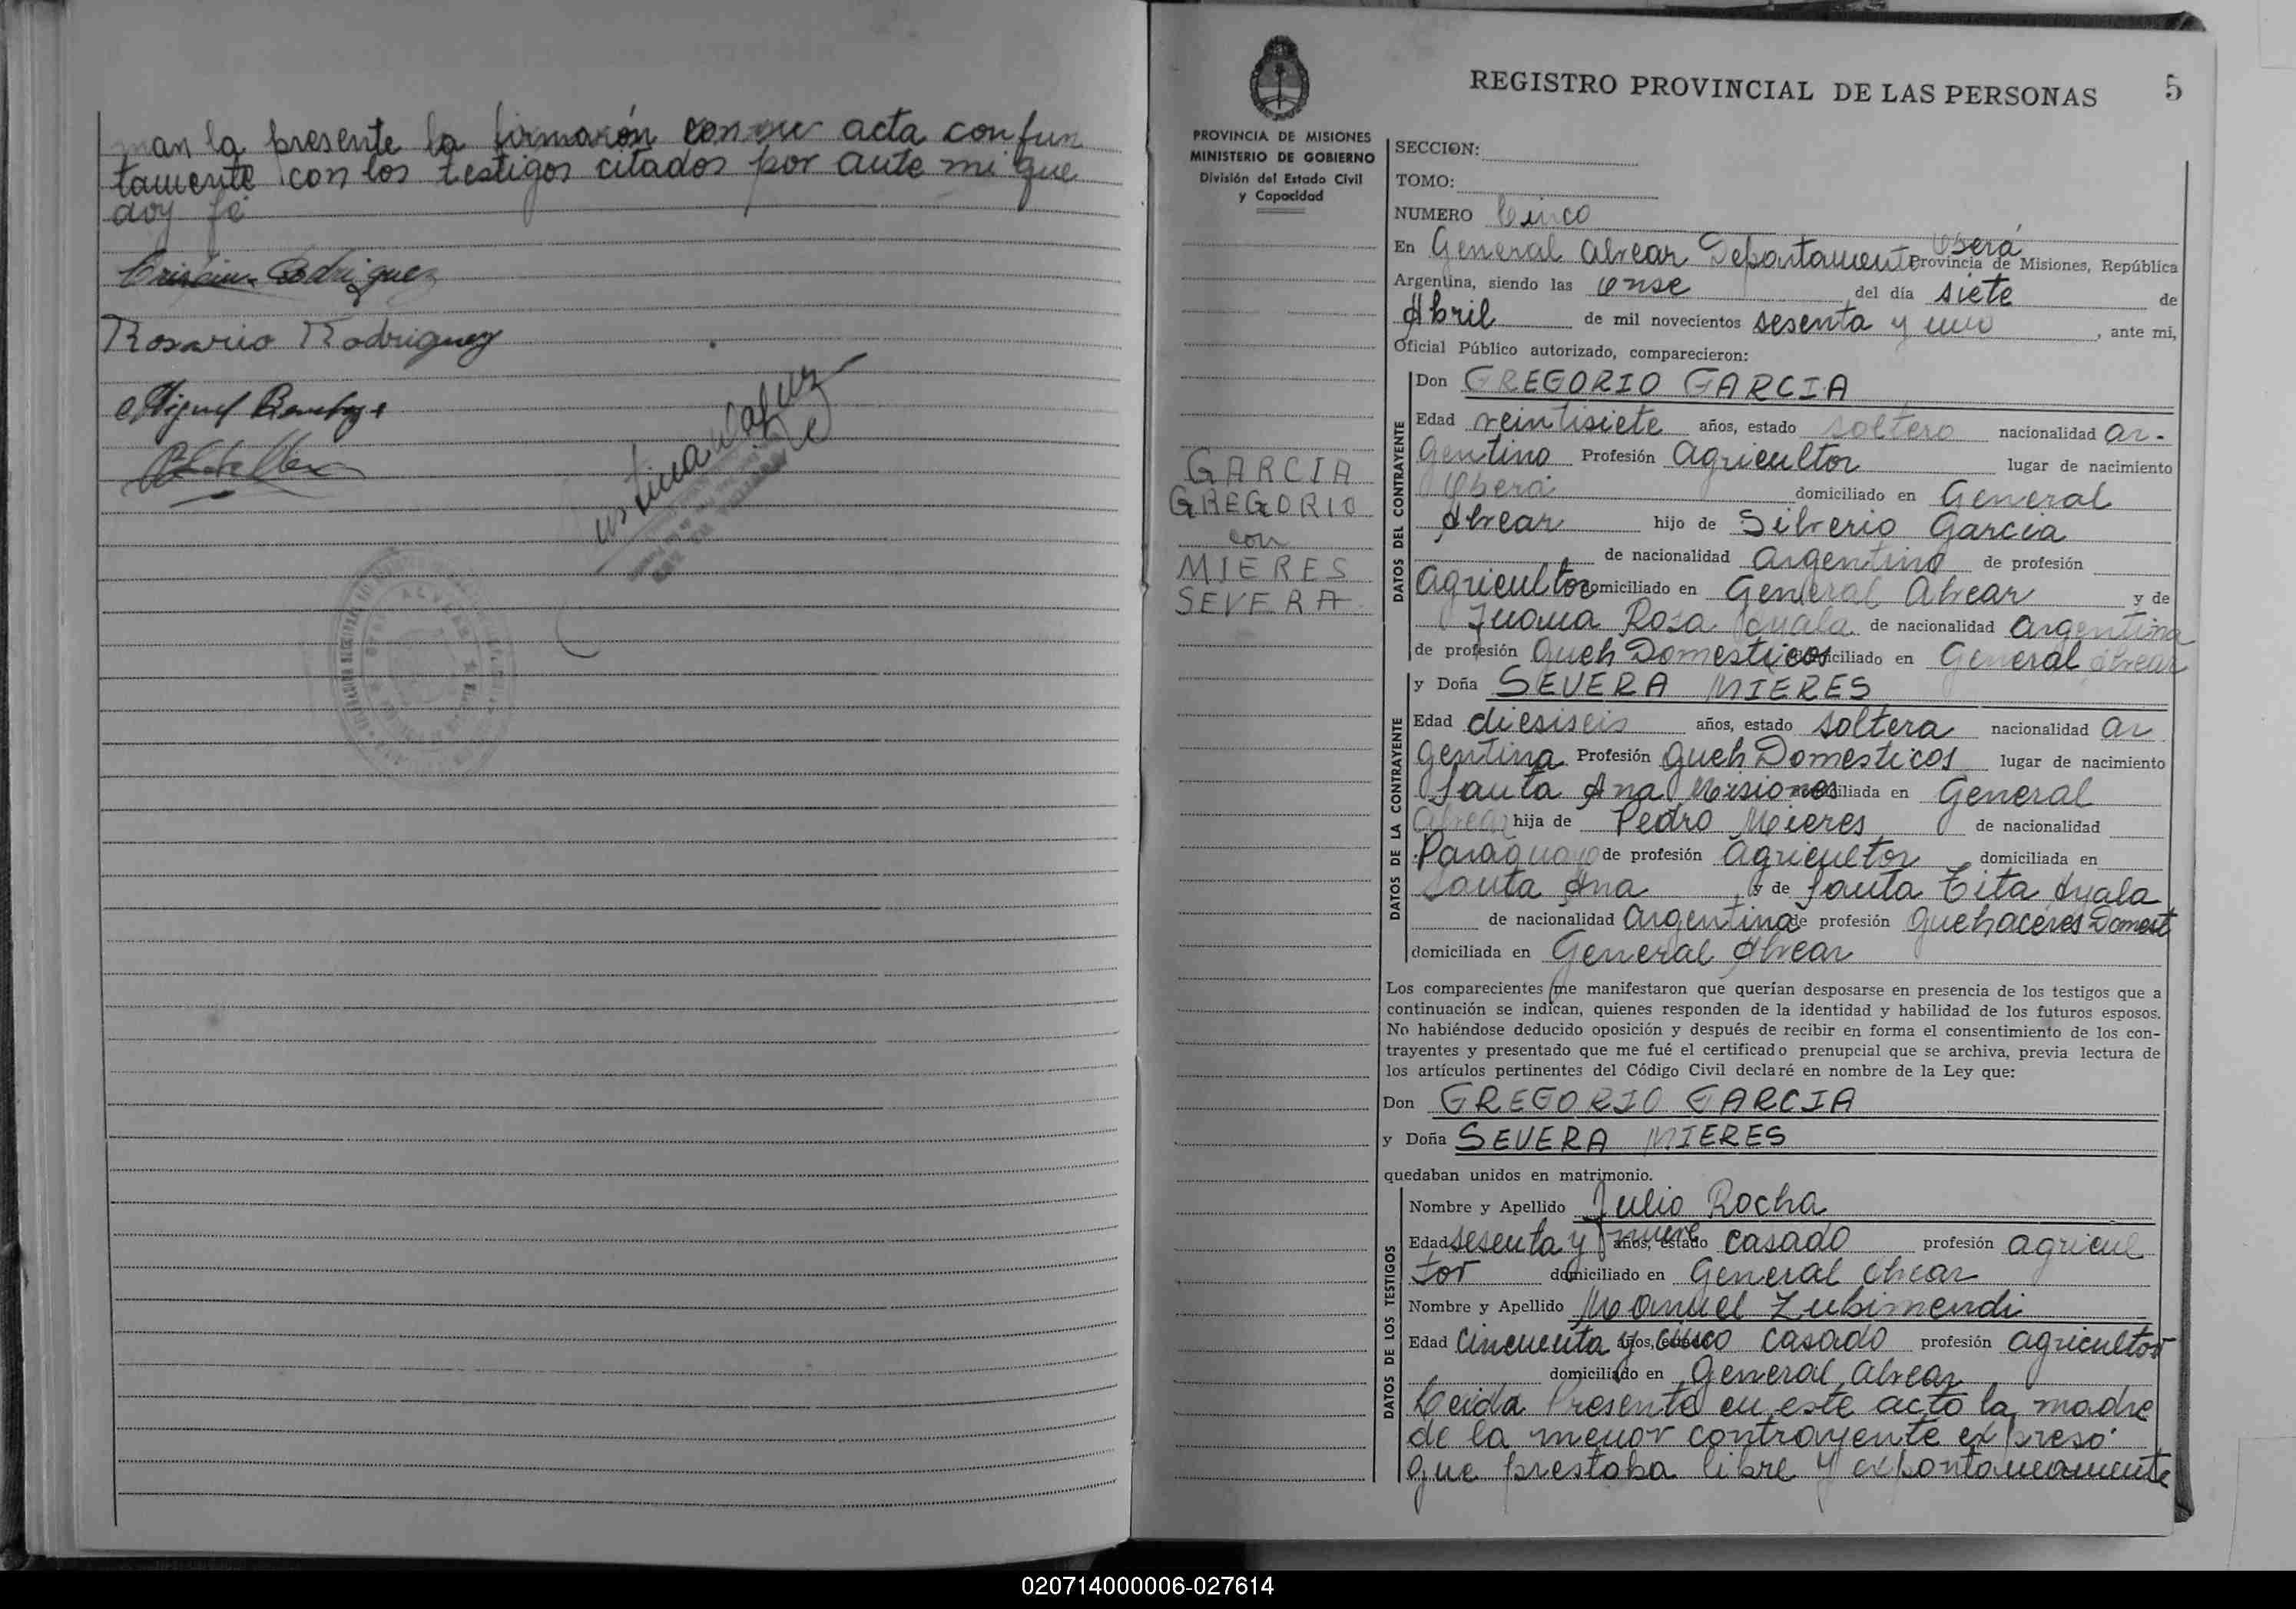 man la presente la firmarón con mi acta conjun
tamente con los testigos citados por ante mi que
doy fé
Rodriguez
Rosario Rodriguez
Miguel
REGISTRO PROVINCIAL DE LAS PERSONAS
5
PROVINCIA DE MISIONES
MINISTERIO DE GOBIERNO
División del Estado Civil
y Capacidad
GARCIA
GREGORIO
con
MIERES
SEVERA
SECCION:
TOMO:
NUMERO Cinco
En General Alvear Departamento Oberá Provincia de Misiones, República
Argentina, siendo las onse del día siete de
Abril de mil novecientos sesenta y uno, ante mi,
Oficial Público autorizado, comparecieron:
DATOS DEL CONTRAYENTE
Don GREGORIO GARCIA
Edad veintisiete años, estado soltero nacionalidad ar-
gentino Profesión Agricultor lugar de nacimiento
Oberá domiciliado en General
Alvear hijo de Silverio Garcia
de nacionalidad Argentino de profesión
Agricultor domiciliado en General Alvear y de
Juana Rosa Ayala de nacionalidad argentina
de profesión Queh Domesticos domiciliado en General Alvear
DATOS DE LA CONTRAYENTE
y Doña SEVERA MIERES
Edad diesiseis años, estado soltera nacionalidad Ar
gentina Profesión Queh Domesticos lugar de nacimiento
Santa Ana Misiones domiciliada en General
Alvear hija de Pedro Mieres de nacionalidad
Paraguayo de profesión Agricultor domiciliada en
Santa Ana y de Santa Tita Ayala
de nacionalidad Argentina de profesión Quehaceres Domest
domiciliada en General Alvear
Los comparecientes me manifestaron que querían desposarse en presencia de los testigos que a
continuación se indican, quienes responden de la identidad y habilidad de los futuros esposos.
No habiéndose deducido oposición y después de recibir en forma el consentimiento de los con-
trayentes y presentado que me fué el certificado prenupcial que se archiva, previa lectura de
los artículos pertinentes del Código Civil declaré en nombre de la Ley que:
Don GREGORIO GARCIA
y Doña SEVERA MIERES
quedaban unidos en matrimonio.
DATOS DE LOS TESTIGOS
Nombre y Apellido Julio Rocha
Edad sesenta y nueve años, estado casado profesión agricul
tor domiciliado en General Alvear
Nombre y Apellido Manuel Zubimendi
Edad Cincuenta y cinco años, estado casado profesión agricultor
domiciliado en General Alvear
Leida Presente en este acto la madre
de la menor contrayente expresó
que prestaba libre y expontaneamente
020714000006-027614